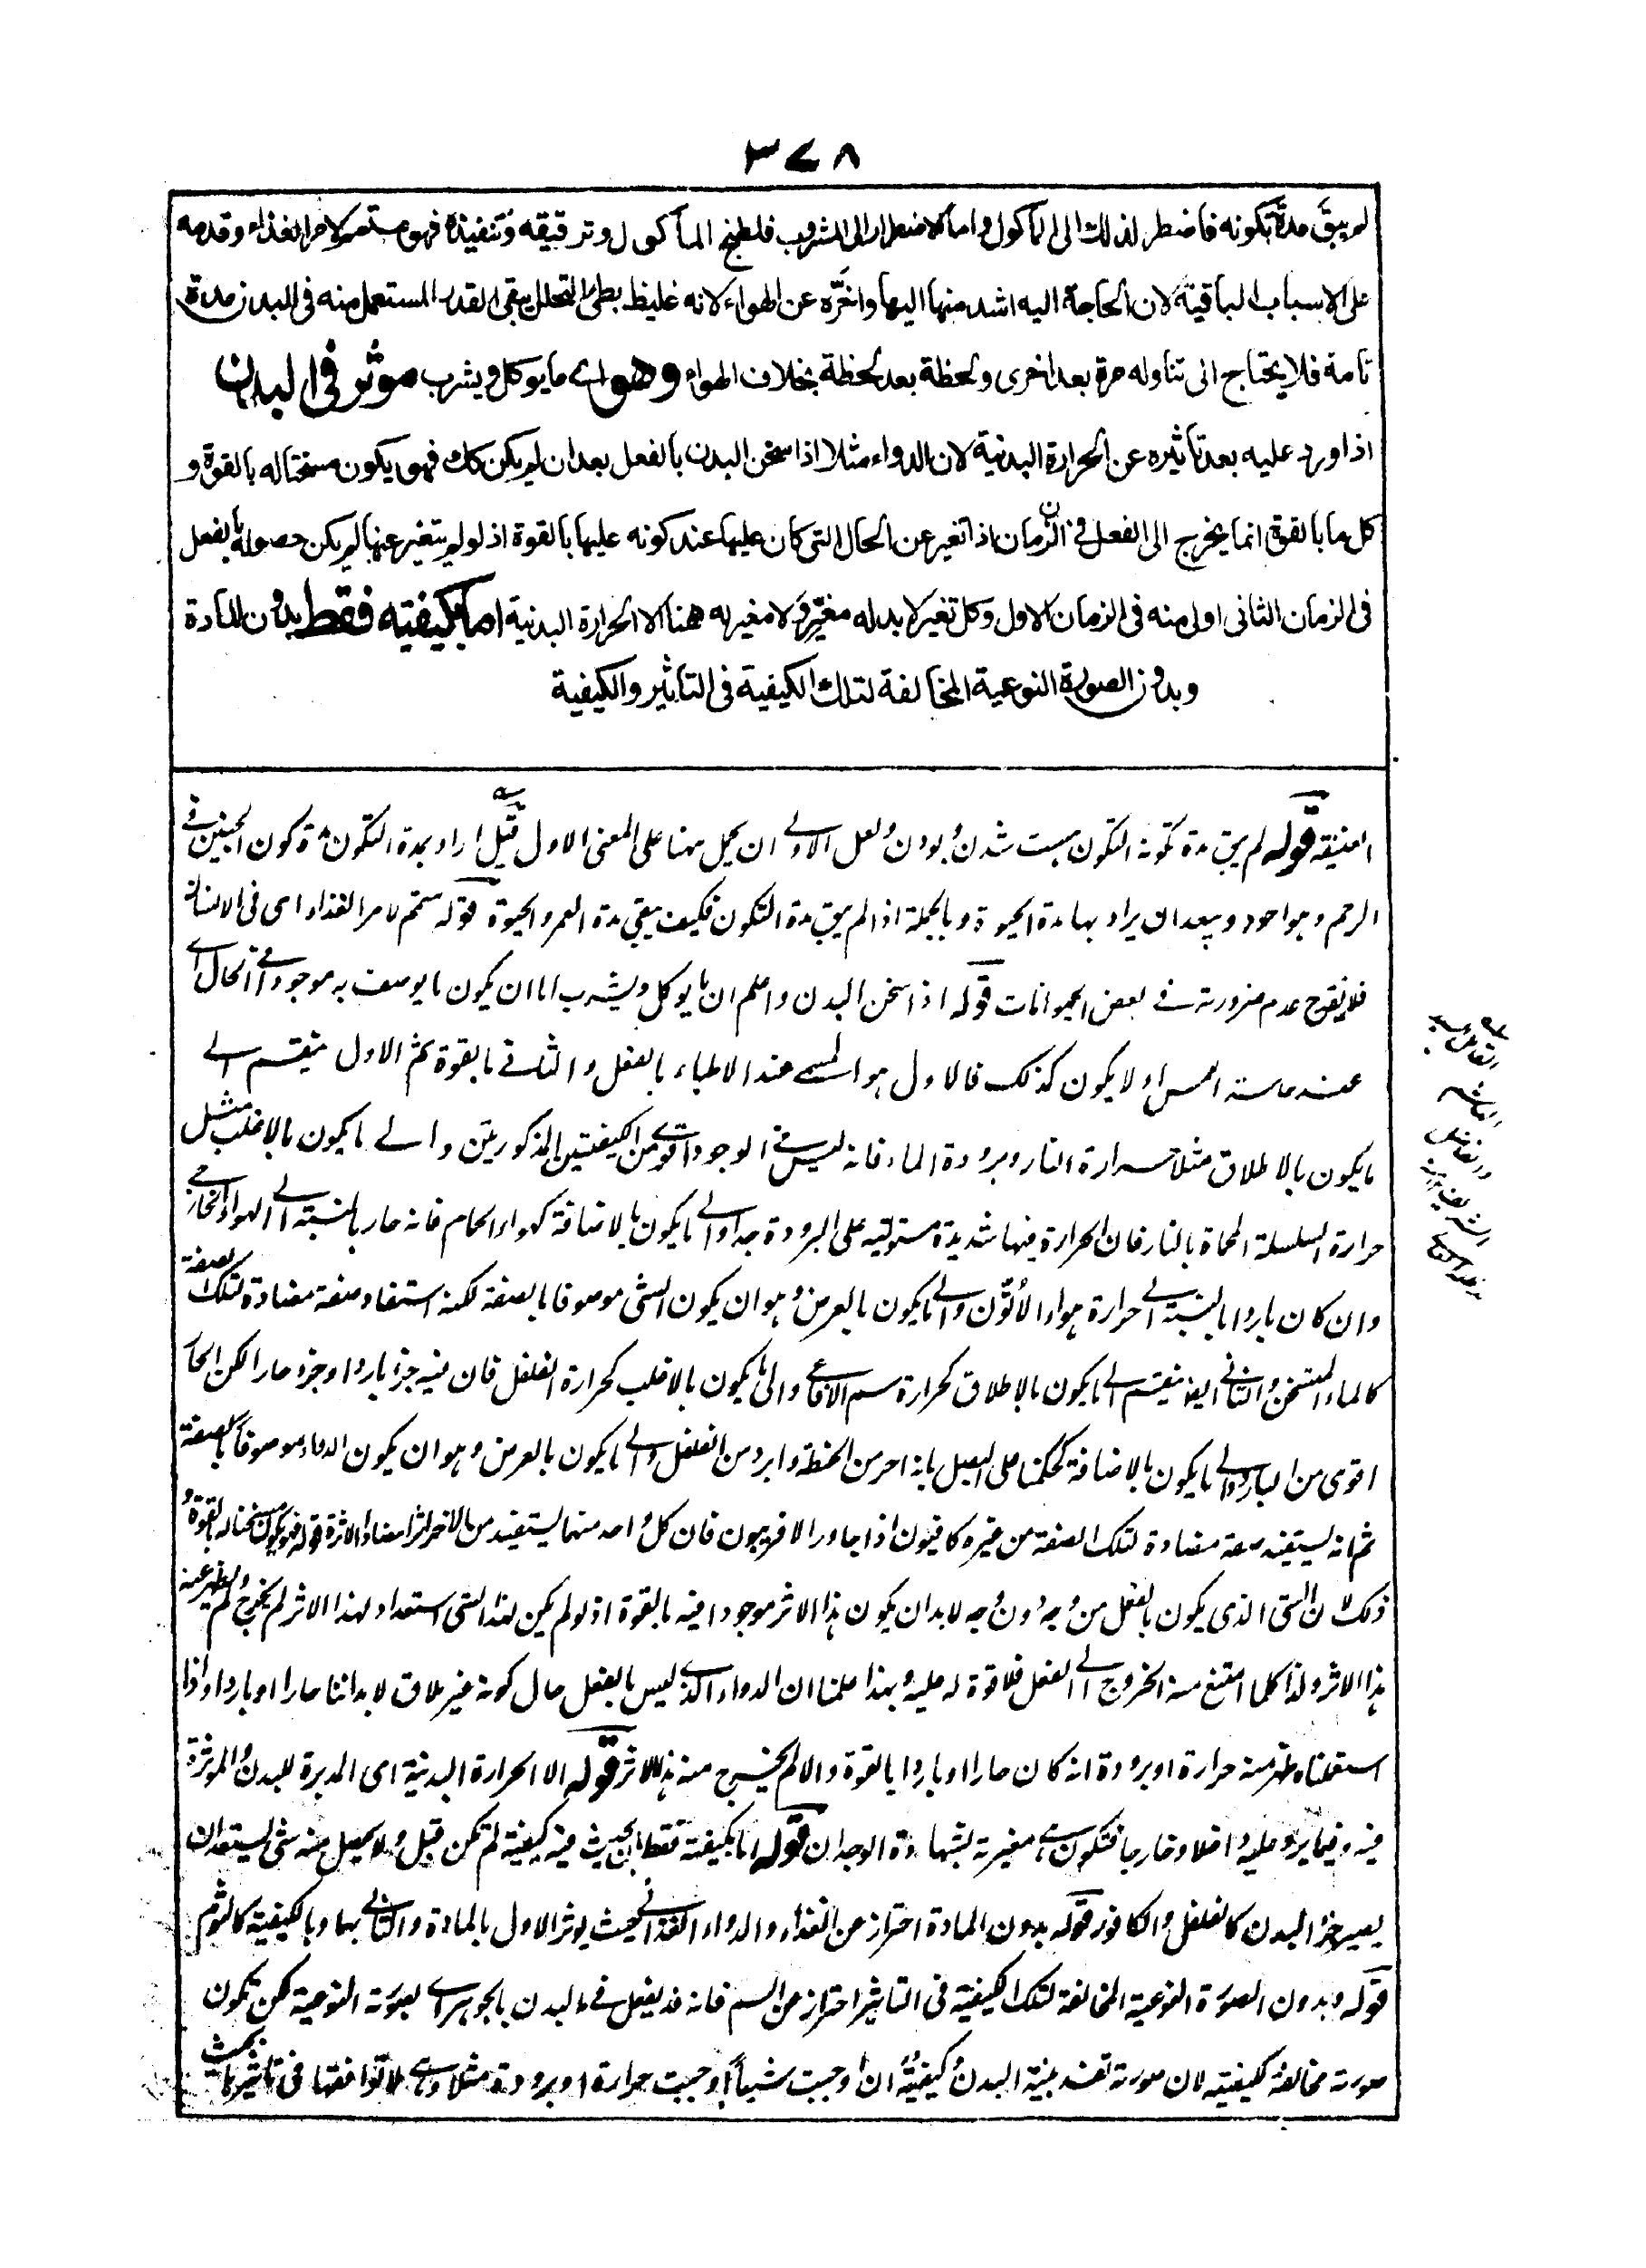 ٣٧٨
لم يبق مدة تكونه فاضطر لذلك الى المأكول واما الاضطرار الى المشروب فلطبخ المأكول وترقيقه وتنفيذه فهو متمم لامر الغذاء وقدمه
على الاسباب الباقية لان الحاجة اليه اشد منها اليها واخره عن الهواء لانه غليظ بطئ التحلل يبقى القدر المستعمل منه فى البدن مدة
تامة فلا يحتاج الى تناوله مرة بعد اخرى ولحظة بعد لحظة بخلاف الهواء وهو اى ما يوكل ويشرب موثر فى البدن
اذا ورد عليه بعد تأثيره عن الحرارة البدنية لان الدواء مثلا اذا سخن البدن بالفعل بعد ان لم يكن كك فهو يكون مسخنا له بالقوة و
كل ما بالقوة انما يخرج الى الفعل فى الزمان اذا تغير عن الحال التى كان عليها عند كونه عليها بالقوة اذ لو لم يتغير عنها لم يكن حصوله بالفعل
فى الزمان الثانى اولى منه فى الزمان الاول وكل تغير لا بد له مغير ولا مغير له هنا الا الحرارة البدنية اما بكيفيته فقط بدون المادة
وبدون الصورة النوعية المخالفة لتلك الكيفية فى التأثير والكيفية
قوله لم يبق مدة تكونه التكون هست شدن و بودن ولعل الاولى ان يحمل ههنا على المعنى الاول قيل اراد بمدة التكون مدة كون الجنين فى
الرحم وهو احود ويبعد ان يراد بها مدة الحيوة وبالجملة اذا لم يبق مدة التكون فكيف يبقى مدة العمر والحيوة قوله متمم لامر الغذاء اى فى الانسان
فلا يقدح عدم ضرورته فى بعض الحيوانات قوله اذا سخن البدن واعلم ان ما يوكل ويشرب اما ان يكون ما يوصف به موجودا فى الحال اى
عند ماسة الحس او لا يكون كذلك فالاول هو المسمى عند الاطباء بالفعل والثانى بالقوة ثم الاول ينقسم الى
ما يكون بالاطلاق مثلا حرارة النار وبرودة الماء فانه ليس فى الوجود اقوى من الكيفيتين المذكورتين والى ما يكون بالاغلب مثل
حرارة السلسلة المحماة بالنار فان الحرارة فيها شديدة مستولية على البرودة جدا والى ما يكون بالاضافة كهواء الحمام فانه حار بالنسبة الى الهواء الخارجى
وان كان باردا بالنسبة الى حرارة هواء الاتون والى ما يكون بالعرض وهو ان يكون الشئ موصوفا بالصفة لكنه استفاد صفة مضادة لتلك الصفة
كالماء المتسخن والثانى ايضا ينقسم الى ما يكون بالاطلاق كحرارة سم الافاعى والى ما يكون بالاغلب كحرارة الفلفل فان فيه جزء باردا وجزء حارا لكن الحار
اقوى من البارد والى ما يكون بالاضافة كحكمنا على العسل بانه احر من الحنطة وابرد من الفلفل والى ما يكون بالعرض وهو ان يكون الدواء موصوفا بالصفة
ثم انه يستفيد صفة مضادة لتلك الصفة من غيره كافيون اذا جاور الافربيون فان كل واحد منهما يستفيد من الاخر اثرا مضادا لاثره قوله فهو يكون مسخنا له بالقوة و
ذلك لان الشئ الذى يكون بالفعل من وجه دون وجه لابد ان يكون هذا الاثر موجودا فيه بالقوة اذ لو لم يكن لهذا الشئ استعداد لهذا الاثر لم يخرج ولم يظهر عنه
هذا الاثر ولذا كلما امتنع منه الخروج الى الفعل فلا قوة له عليه وبهذا علمنا ان الدواء الذى ليس بالفعل حال كونه غير ملاق لابداننا حارا او باردا واذا
استعملناه ظهر منه حرارة او برودة انه كان حارا او باردا بالقوة والا لم يخرج منه هذا الاثر قوله الا الحرارة البدنية اى المدبرة للبدن والموثرة
فيه وفيما يرد عليه داخلا وخارجا فتكون هى مغيرته بشهادة الوجدان قوله اما بكيفيته فقط بان يحدث فيه كيفية لم تكن قبل ولا يحصل منه شئ ليستعد ان
يصير جزء البدن كالفلفل والكافور قوله بدون المادة احتراز عن الغذاء والدواء الغذائى حيث يوثر الاول بالمادة والثانى بها وبالكيفية كالثوم
قوله وبدون الصورة النوعية المخالفة لتلك الكيفية فى التاثير احتراز عن السم فانه قد يفعل فى البدن بالجوهر اى بصورته النوعية لكن تكون
صورته مخالفة لكيفيته لان صورته تفسد بنية البدن وكيفيته ان اوجبت شيأ اوجبت حرارة او برودة مثلا وهى لا توافقها فى تاثيرها بحيث